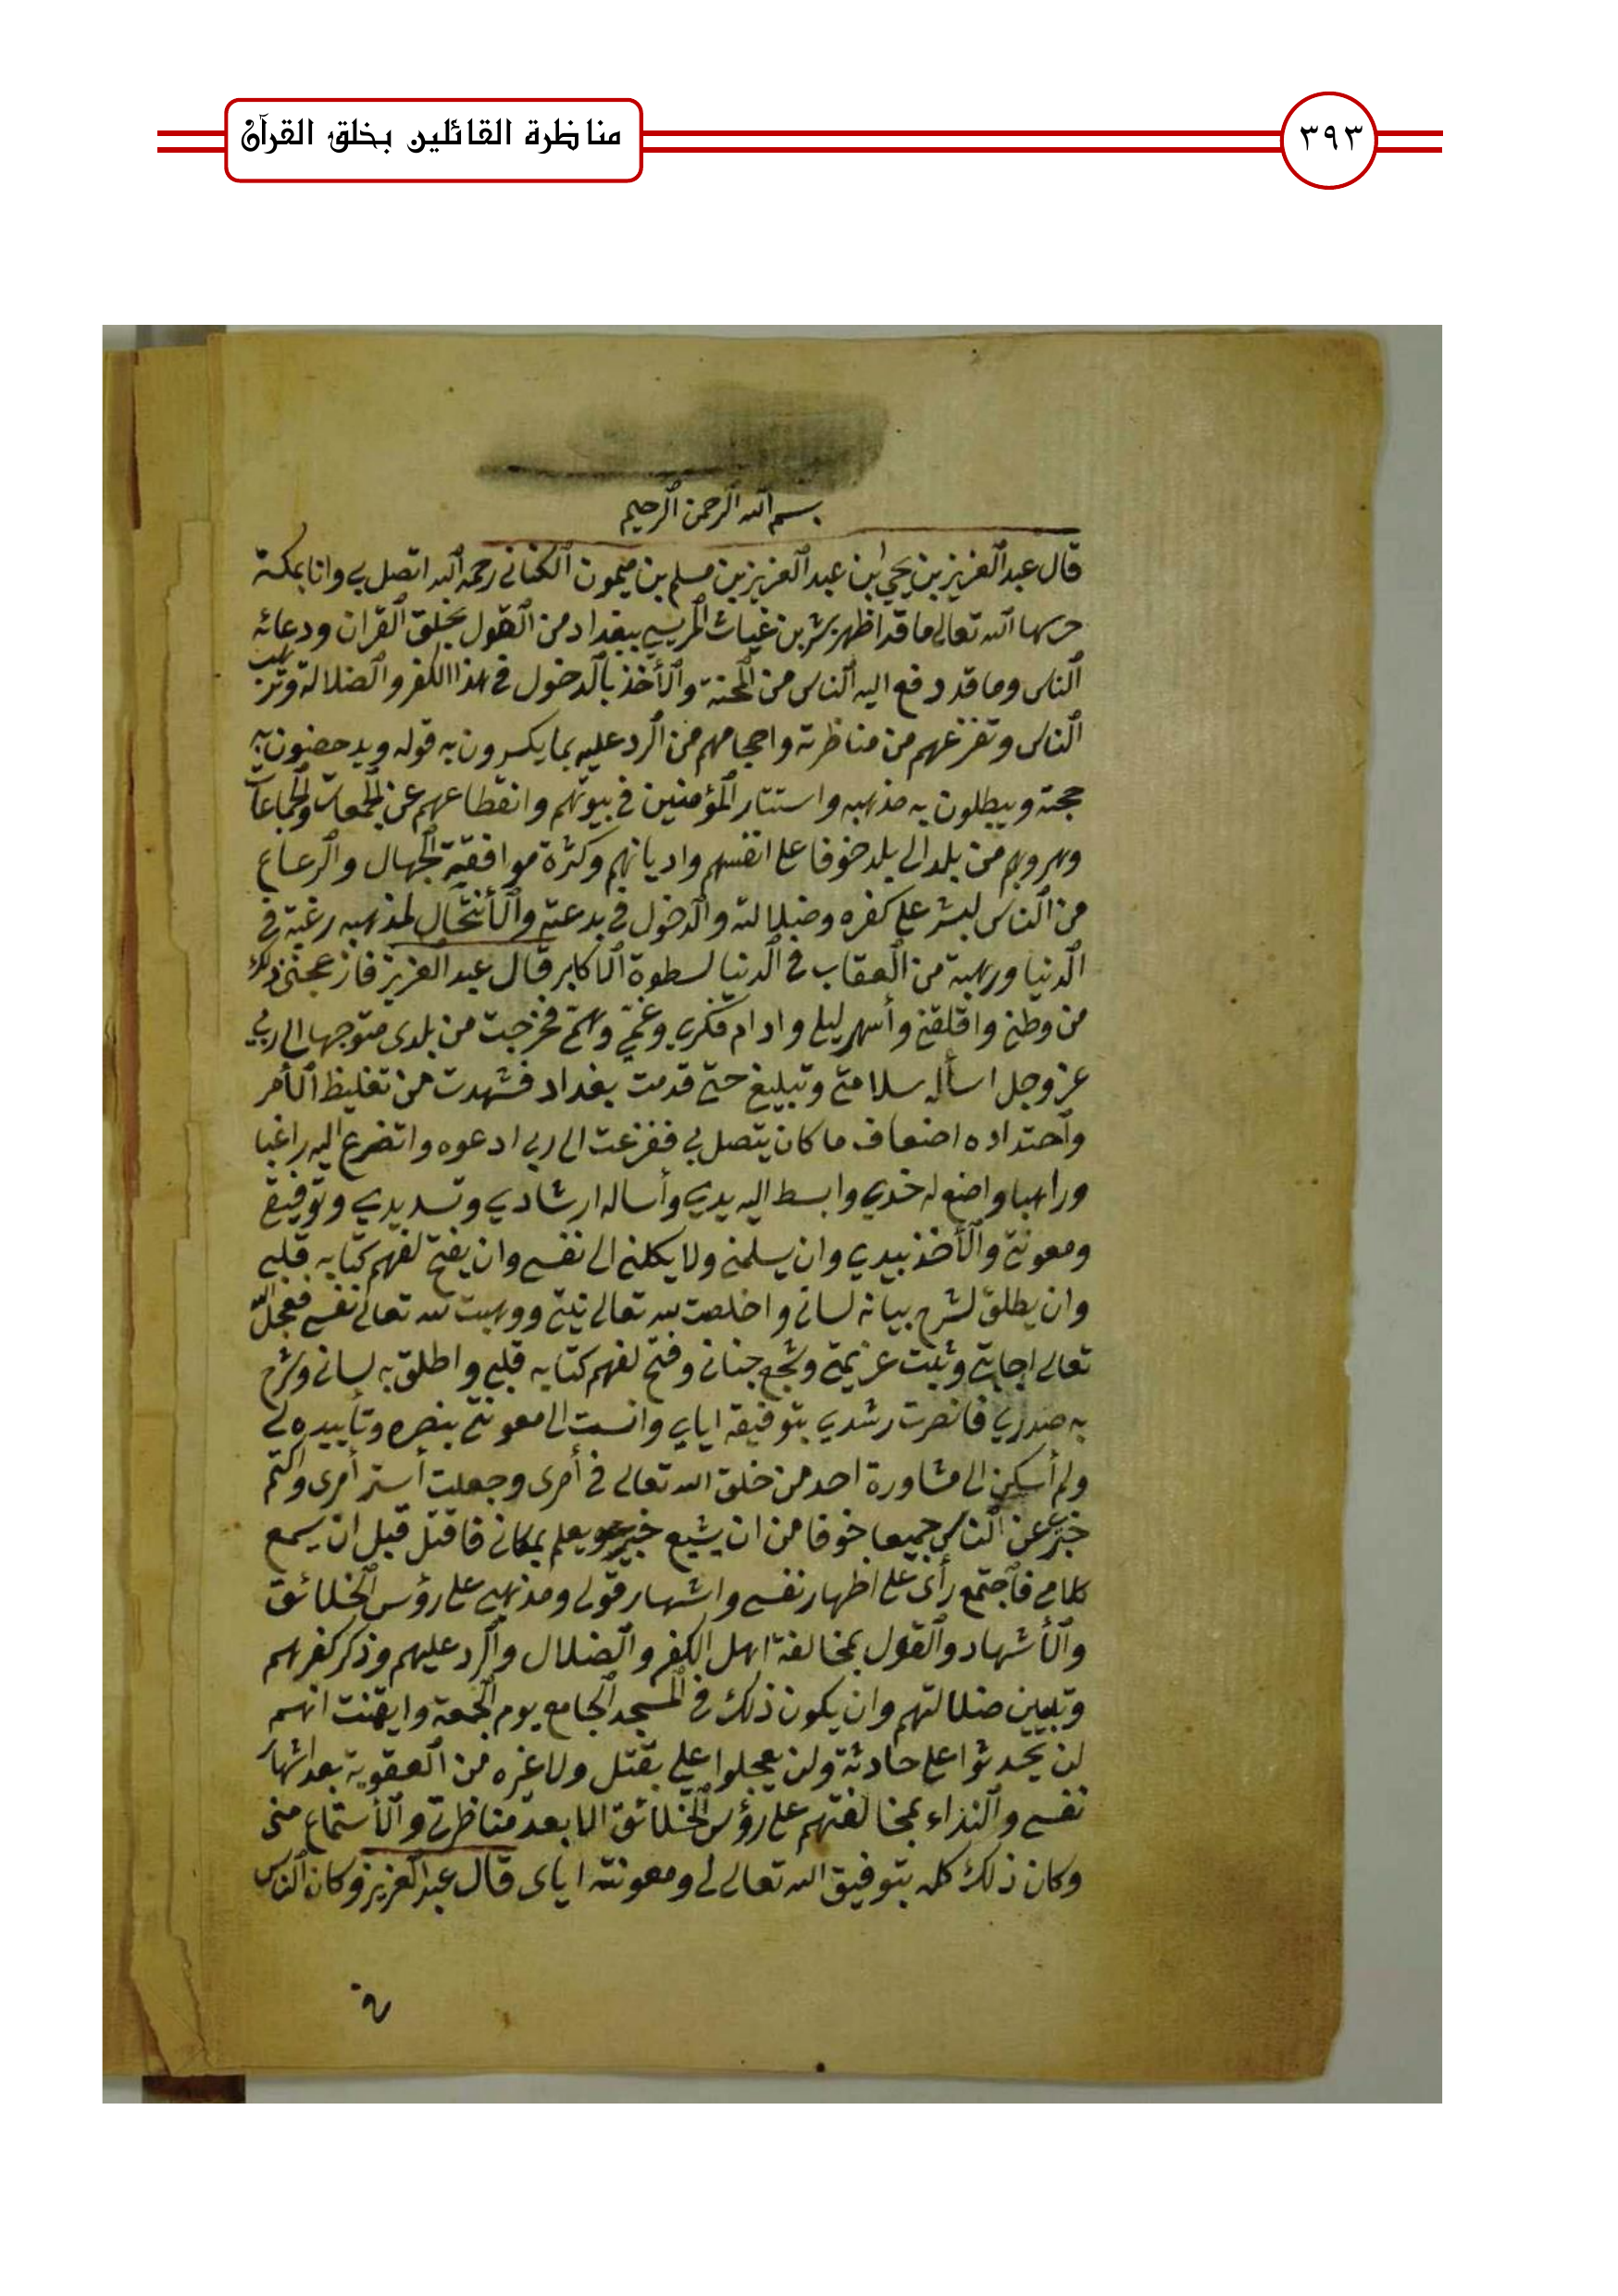 مناظرة القائلين بخلق القرآن
٣٩٣
بسم الله الرحمن الرحيم
قال عبد العزيز بن يحيى ابن عبد العزيز بن مسلم بن ميمون الكناني رحمه الله اتصل بي وانا بمكة
حرسها الله تعالى ما قد اظهر بشر بن غياث المريسي ببغداد من القول بخلق القران ودعائه
الناس وما قد دفع اليه الناس من المحنة والأخذ بالدخول في هذا الكفر والضلالة وترهيب
الناس وتفزعهم من مناظرته واحجامهم من الرد عليه بما يكسرون به قوله ويدحضون به
حجته ويبطلون به مذهبه واستتار المؤمنين في بيوتهم وانقطاعهم عن الجمعات والجماعات
وهروبهم من بلد الى بلد خوفا على انفسهم واديانهم وكثرة موافقة الجهال والرعاع
من الناس لبشر على كفره وضلالته والدخول في بدعته والأنتحال لمذهبه رغبة في
الدنيا ورهبة من العقاب في الدنيا لسطوة الاكابر قال عبد العزيز فازعجني ذلك
من وطني واقلقني وأسهر ليلي وادام فكري وغمي وهمي فخرجت من بلدى متوجها الى ربي
عز وجل اسأله سلامتي وتبليغي حتى قدمت بغداد فشهدت من تغليظ الأمر
وأحتداده اضعاف ما كان يتصل بي ففزعت الى ربي ادعوه واتضرع اليه راغبا
وراهبا واضع له خدي وابسط اليه يدي وأساله ارشادي وتسديدي وتوفيقي
ومعونتي والأخذ بيدي وان يسلمني ولا يكلني الى نفسي وان يفتح لفهم كتابه قلبي
وان يطلق لشرح بيانه لساني واخلصت لله تعالى نيتي ووهبت لله تعالى نفسي فعجل الله
تعالى اجابتي وثبت عزيمتي وشجع جناني وفتح لفهم كتابه قلبي واطلق به لساني وشرح
به صدري فانصرت رشدي بتوفيقه اياي وانست الى معونتي بنصره وتأييده لي
ولم أسكن الى مشاورة احد من خلق الله تعالى في أمرى وجعلت أستر أمرى واكتم
خبري عن الناس جميعا خوفا من ان يشيع خبري ويعلم بمكاني فاقتل قبل ان يسمع
كلامي فأجتمع رأى على اظهار نفسي واشهار قولي ومذهبي على رؤس الخلائق
والأشهاد والقول بمخالفة اهل الكفر والضلال والرد عليهم وذكر كفرهم
وتبيين ضلالتهم وان يكون ذلك في المسجد الجامع يوم الجمعة وايقنت انهم
لن يحدثوا علي حادثة ولن يعجلوا علي بقتل ولا غيره من العقوبة بعد اشهار
نفسي والنداء بمخالفتهم على رؤس الخلائق الا بعد مناظرتي والأستماع منى
وكان ذلك كله بتوفيق الله تعالى لي ومعونته اياى قال عبد العزيز وكان الناس